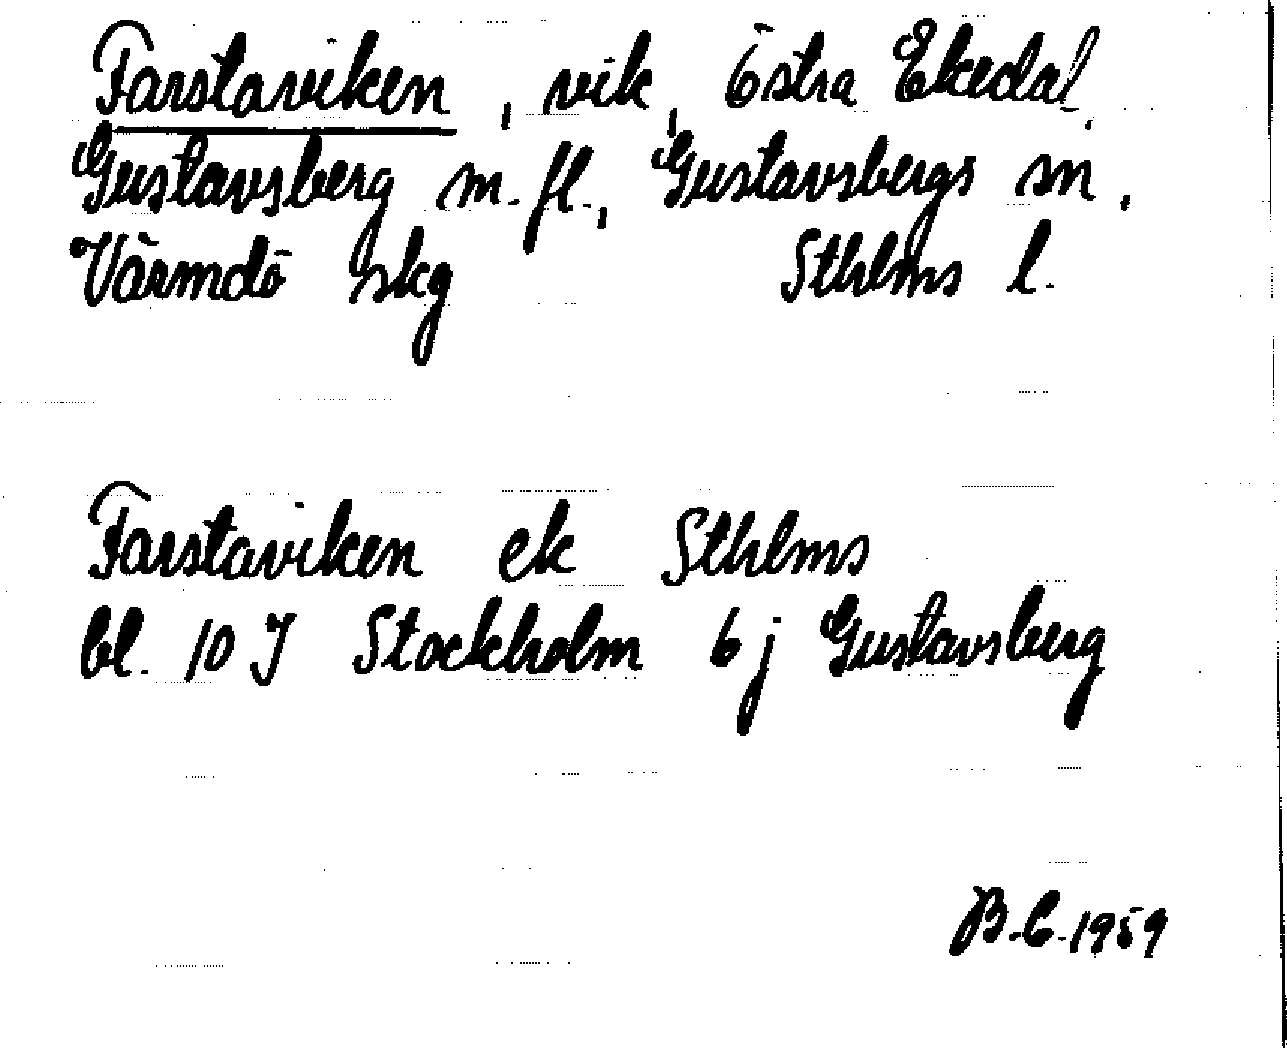 Farstaviken, vik, Östra Ekedal,
Gustavsberg m.fl., Gustavsbergs sn,
Värmdö skg Sthlms l.
Farstaviken ek Sthlms
bl. 10 J Stockholm 6 j Gustavsberg
B.C. 1959